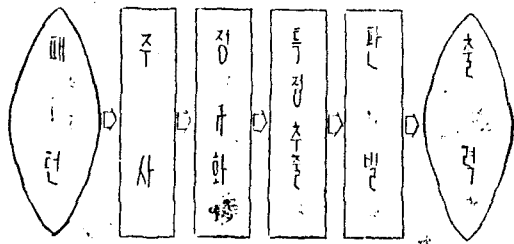 패턴
주사
정규화
특징추출
판별
출력